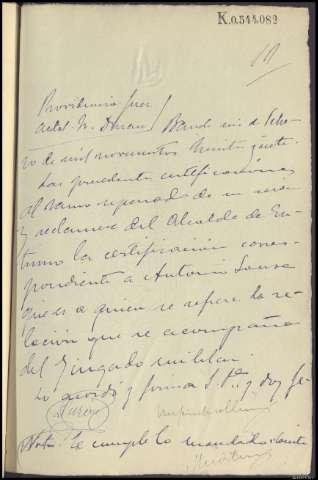 K.0.544.082
Providencia Juez
actal. Sr. Duran Bande seis de Febre
ro de mil novecientos treinta y siete.
Las precedentes certificaciones
al ramo separado de su razón
y reclámese del Alcalde de En
trimo la certificación corres
pondiente a Antonio Sousa
que es a quien se refiere la re
lación que se acompaña
del Juzgado militar.
Lo acordó y firma S. Sª. y doy fe.
Nota. Se cumple lo mandado. Doy fe